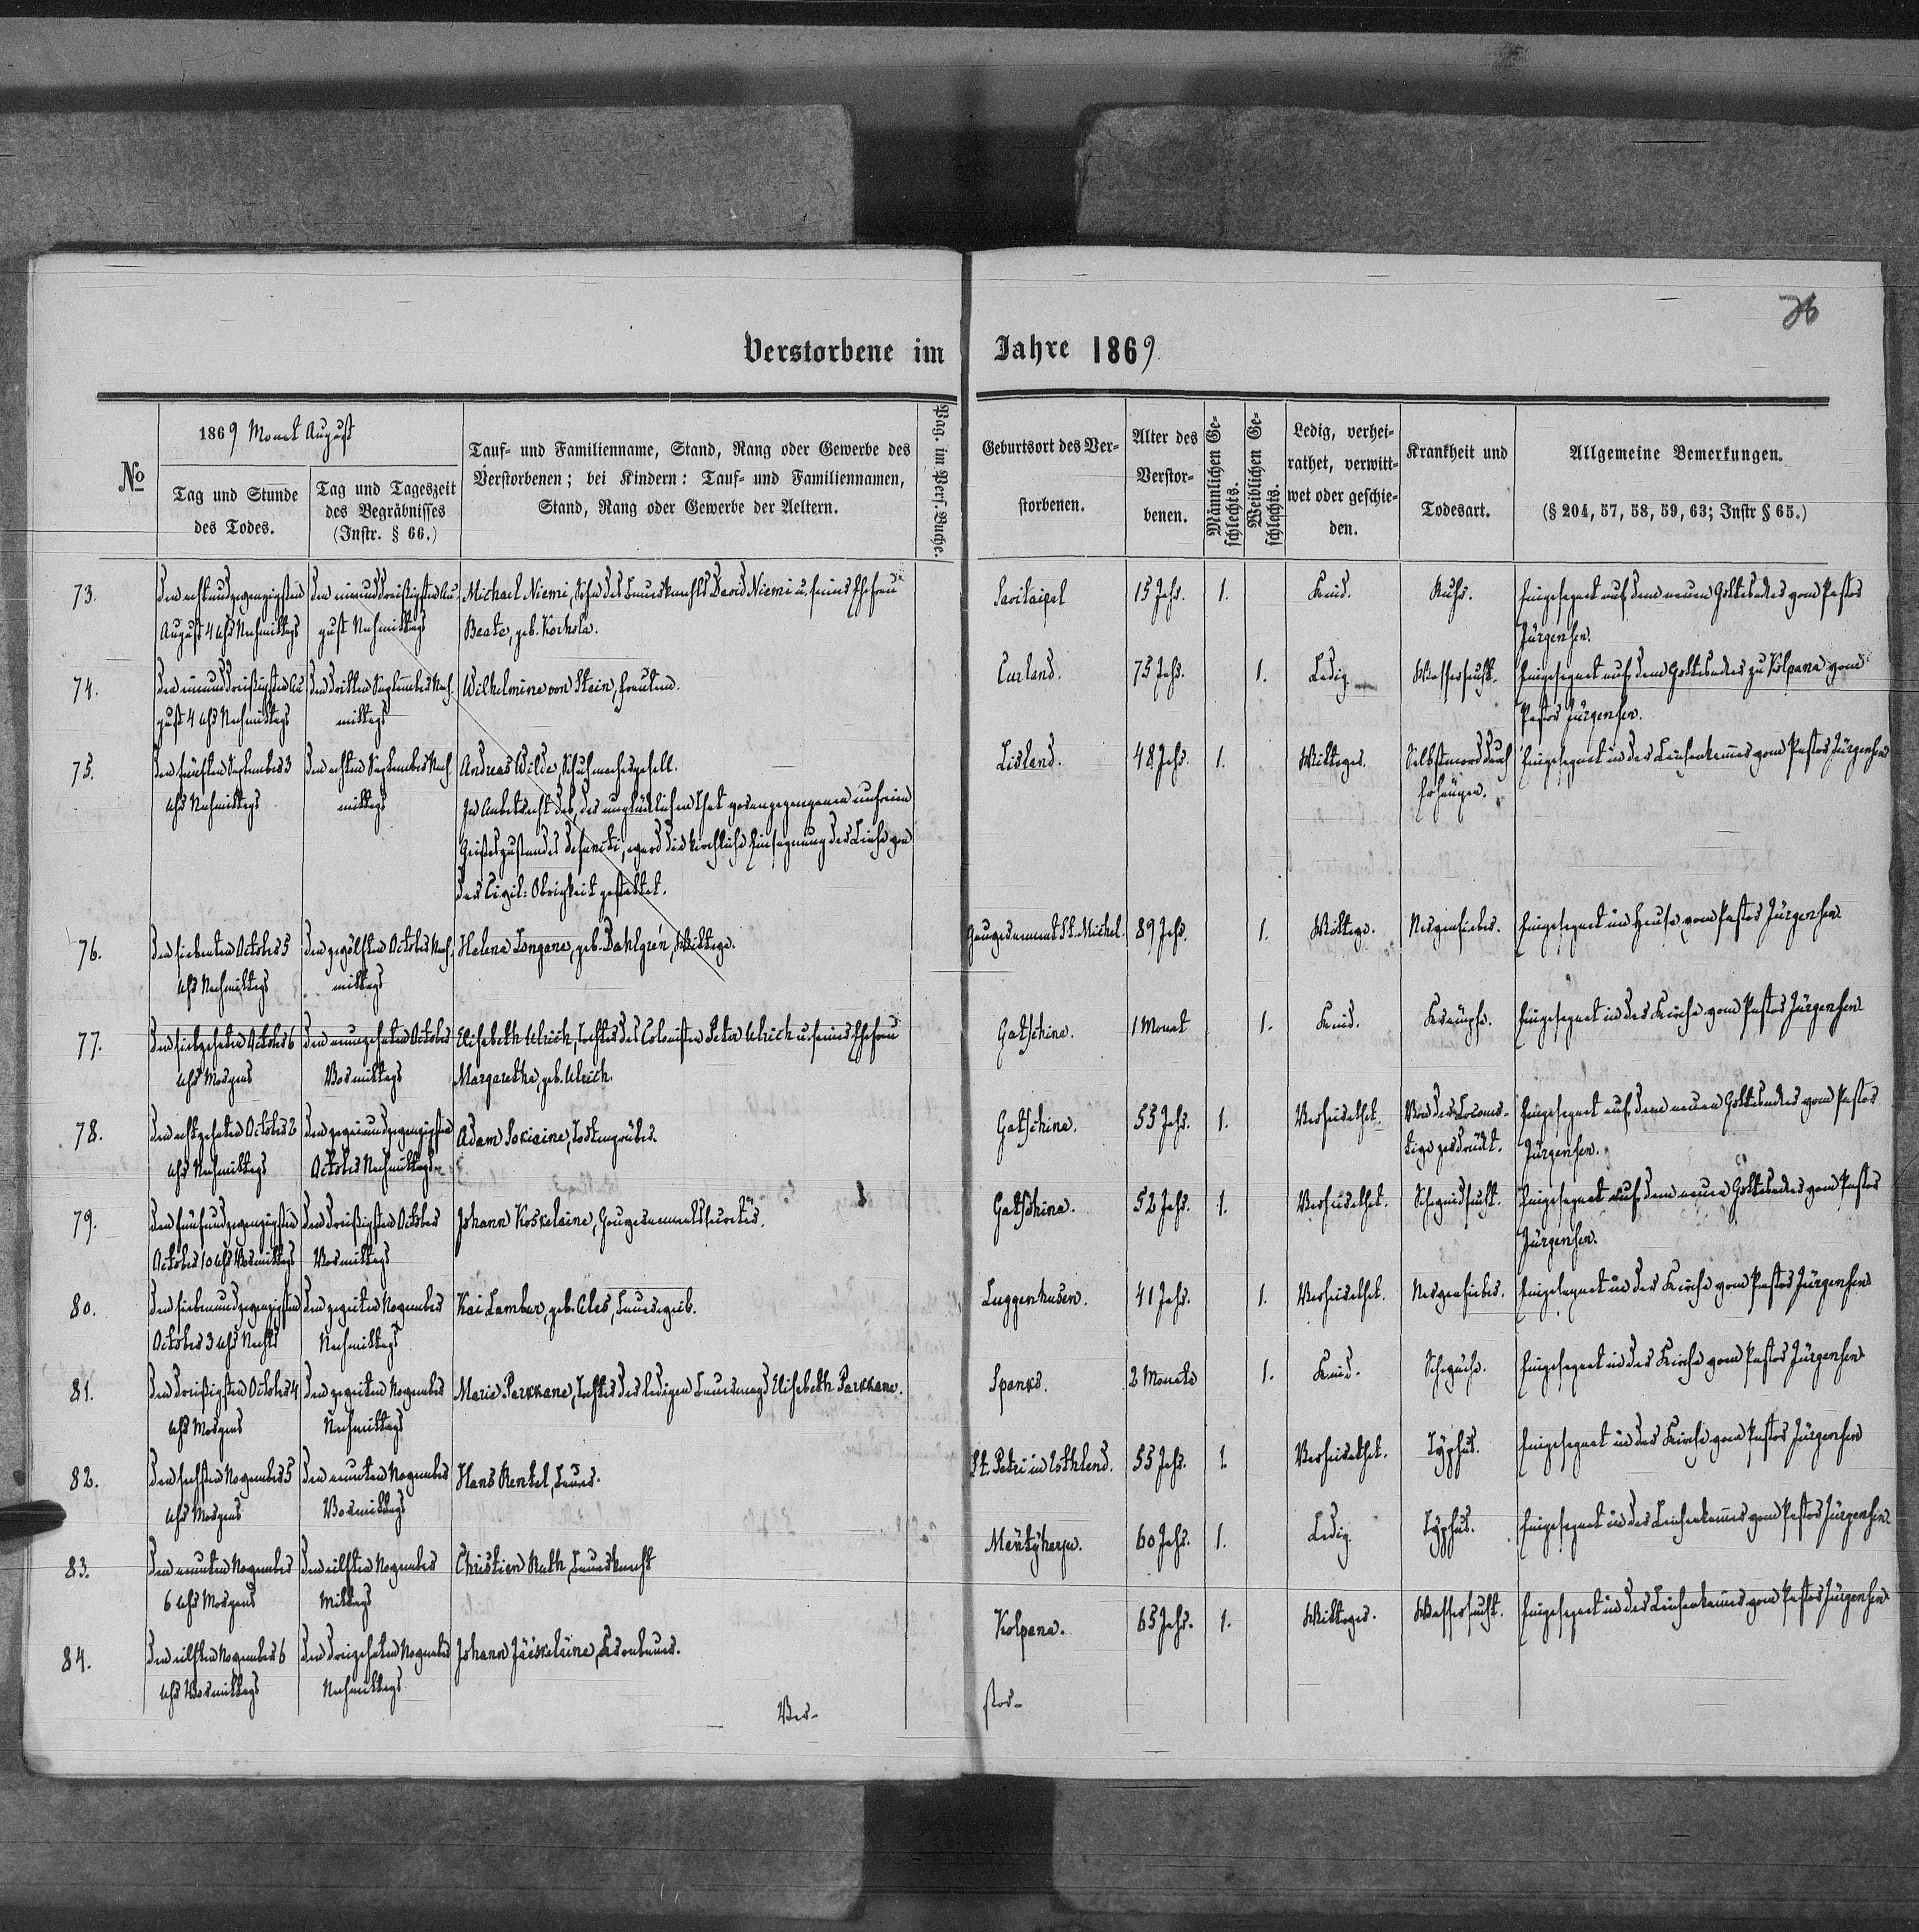 76
Verstorbene im Jahre 1869
No
1869 Monat August
Tag und Stunde
des Todes.
Tag und Tageszeit
des Begräbnisses
(Instr. § 66.)
Tauf- und Familienname, Stand, Rang oder Gewerbe des
Verstorbenen; bei Kindern: Tauf- und Familiennamen,
Stand, Rang oder Gewerbe der Aeltern.
Pag. im Pers.-Buche.
Geburtsort des Ver-
storbenen.
Alter des
Verstor-
benen.
Männlichen Ge-
schlechts.
Weiblichen Ge-
schlechts.
Ledig, verhei-
rathet, verwitt-
wet oder geschie-
den.
Krankheit und
Todesart.
Allgemeine Bemerkungen.
(§ 204, 57, 58, 59, 63; Instr § 65.)
73. den achtundzwanzigsten den einunddreißigsten Au- Michael Niemi, Sohn des Bauerknechts David Niemi u. seiner Ehefrau Savitaipal 15 Jahr. 1. Kind. Ruhr. Eingesegnet auf dem neuen Gottesacker vom Pastor
August 4 Uhr Nachmittags gust Nachmittags Beate, geb. Kockola. Jürgensen.
74. den einunddreißigsten Au- den dritten September Nach- Wilhelmine von Stein, Fräulein. Curland. 75 Jahr. 1. Ledig Wassersucht. Eingesegnet auf dem Gottesacker zu Kolpana vom
gust 4 Uhr Nachmittags mittags Pastor Jürgensen.
75. den fünften September 3 den achten September Nach- Andreas Wilde, Schuhmachergesell. Livland. 48 Jahr. 1. Wittwer. Selbstmord durch Eingesegnet in der Leichenkammer vom Pastor Jürgensen
Uhr Nachmittags mittags In Anbetracht des, der unglücklichen That vorangegangenen unfreien Erhängen.
Geisteszustandes defuncti, ward die kirchliche Einsegnung der Leiche von
der Civil-Obrigkeit gestattet.
76. den siebenten October 5 den zwölften October Nach- Helena Longane, geb. Dahlgrén, Wittwe. Gouvernement St. Michel. 89 Jahr. 1. Wittwe. Nervenfieber. Eingesegnet im Hause vom Pastor Jürgensen
Uhr Nachmittags mittags
77. den siebzehnten October 6 den neunzehnten October Elisabeth Ulrich, Tochter des Colonisten Peter Ulrich u. seiner Ehefrau Gatschina. 1 Monat 1. Kind. Krämpfe. Eingesegnet in der Kirche vom Pastor Jürgensen
Uhr Morgens Vormittags Margaretha, geb. Ulrich.
78. den achtzehnten October 2 den zweiundzwanzigsten Adam Sokiaine, Todtengräber. Gatschina. 55 Jahr. 1. Verheirathet. Von der Locomo- Eingesegnet auf dem neuen Gottesacker vom Pastor
Uhr Nachmittags October Nachmittags tive zerdrückt. Jürgensen.
79. den fünfundzwanzigsten den dreißigsten October Johann Koskelaine, Gouvernementssecretär. Gatschina. 52 Jahr. 1. Verheirathet. Schwindsucht. Eingesegnet auf dem neuen Gottesacker vom Pastor
October 10 Uhr Vormittags Vormittags Jürgensen.
80. den siebenundzwanzigsten den zweiten November Kai Lambur, geb. Alas, Bauerweib. Luggenhusen. 41 Jahr. 1. Verheirathet. Nervenfieber. Eingesegnet in der Kirche vom Pastor Jürgensen
October 3 Uhr Nachts Nachmittags
81. den dreißigsten October 4 den zweiten November Marie Parkkane, Tochter der ledigen Bauermagd Elisabeth Parkkane. Spanko. 2 Monate 1. Kind. Schwäche. Eingesegnet in der Kirche vom Pastor Jürgensen
Uhr Morgens Nachmittags
82. den sechsten November 5 den neunten November Hans Rentel, Bauer. St. Petri in Esthland. 55 Jahr. 1. Verheirathet. Typhus. Eingesegnet in der Kirche vom Pastor Jürgensen
Uhr Morgens Vormittags
83. den neunten November den eilften November Christian Rath, Bauerknecht Mentyharju. 60 Jahr. 1. Ledig. Typhus. Eingesegnet in der Leichenkammer vom Pastor Jürgensen
6 Uhr Morgens Mittags
84. den eilften November 6 den dreizehnten November Johann Jääskeläine, Kronbauer. Kolpana. 65 Jahr. 1. Wittwer. Wassersucht. Eingesegnet in der Leichenkammer vom Pastor Jürgensen
Uhr Vormittags Nachmittags
Ver- stor-